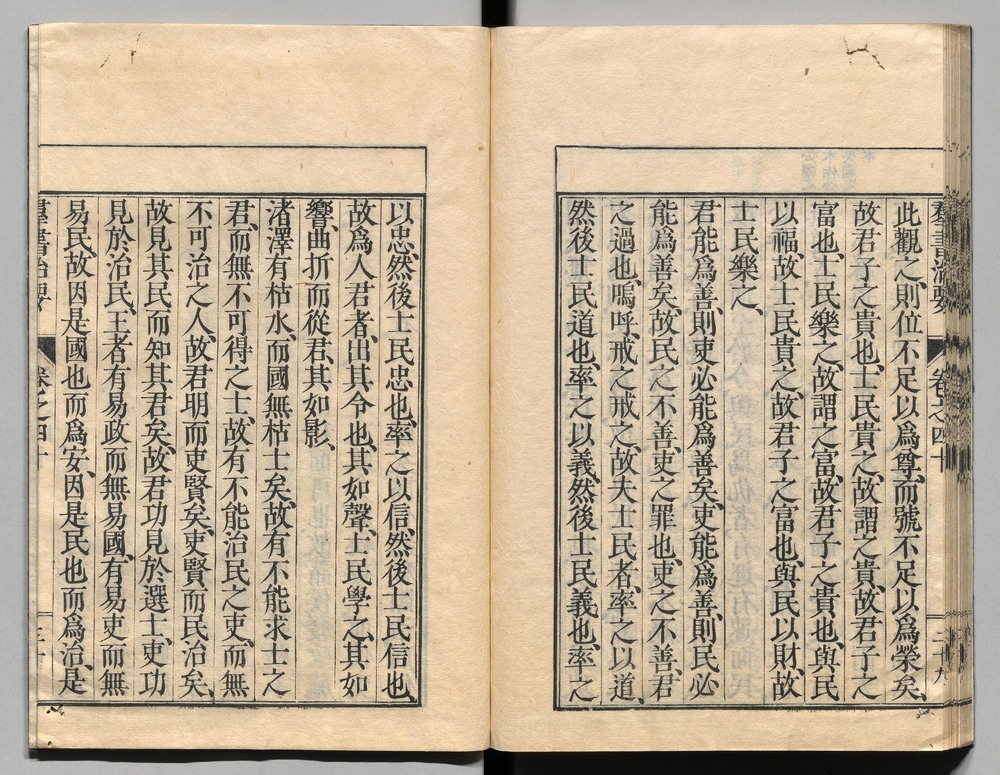 羣書治要 卷之四十 二十九
此觀之、則位不足以爲尊、而號不足以爲榮矣、
故君子之貴也、士民貴之、故謂之貴、故君子之
富也、士民樂之、故謂之富、故君子之貴也、與民
以福、故士民貴之、故君子之富也、與民以財、故
士民樂之、
君能爲善、則吏必能爲善矣、吏能爲善、則民必
能爲善矣、故民之不善、吏之罪也、吏之不善、君
之過也、嗚呼、戒之戒之、故夫士民者、率之以道、
然後士民道也、率之以義、然後士民義也、率之
以忠、然後士民忠也、率之以信、然後士民信也、
故爲人君者、出其令也、其如聲、士民學之、其如
響、曲折而從君、其如影、
渚澤有枯水、而國無枯士矣、故有不能求士之
君、而無不可得之士、故有不能治民之吏、而無
不可治之人、故君明而吏賢矣、吏賢而民治矣、
故見其民而知其君矣、故君功見於選士、吏功
見於治民、王者有易政而無易國、有易吏而無
易民、故因是國也而爲安、因是民也而爲治、是
羣書治要 卷之四十 三十